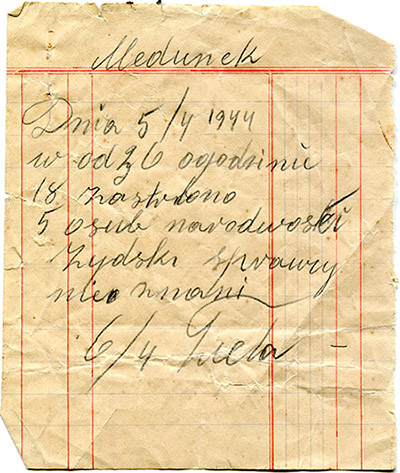 Medunek
Dnia 5/4 1944
w od 26 ogodzinie
18 zastrelono
5 osub narodwości
żydski sprawcy
nie znani
6/4